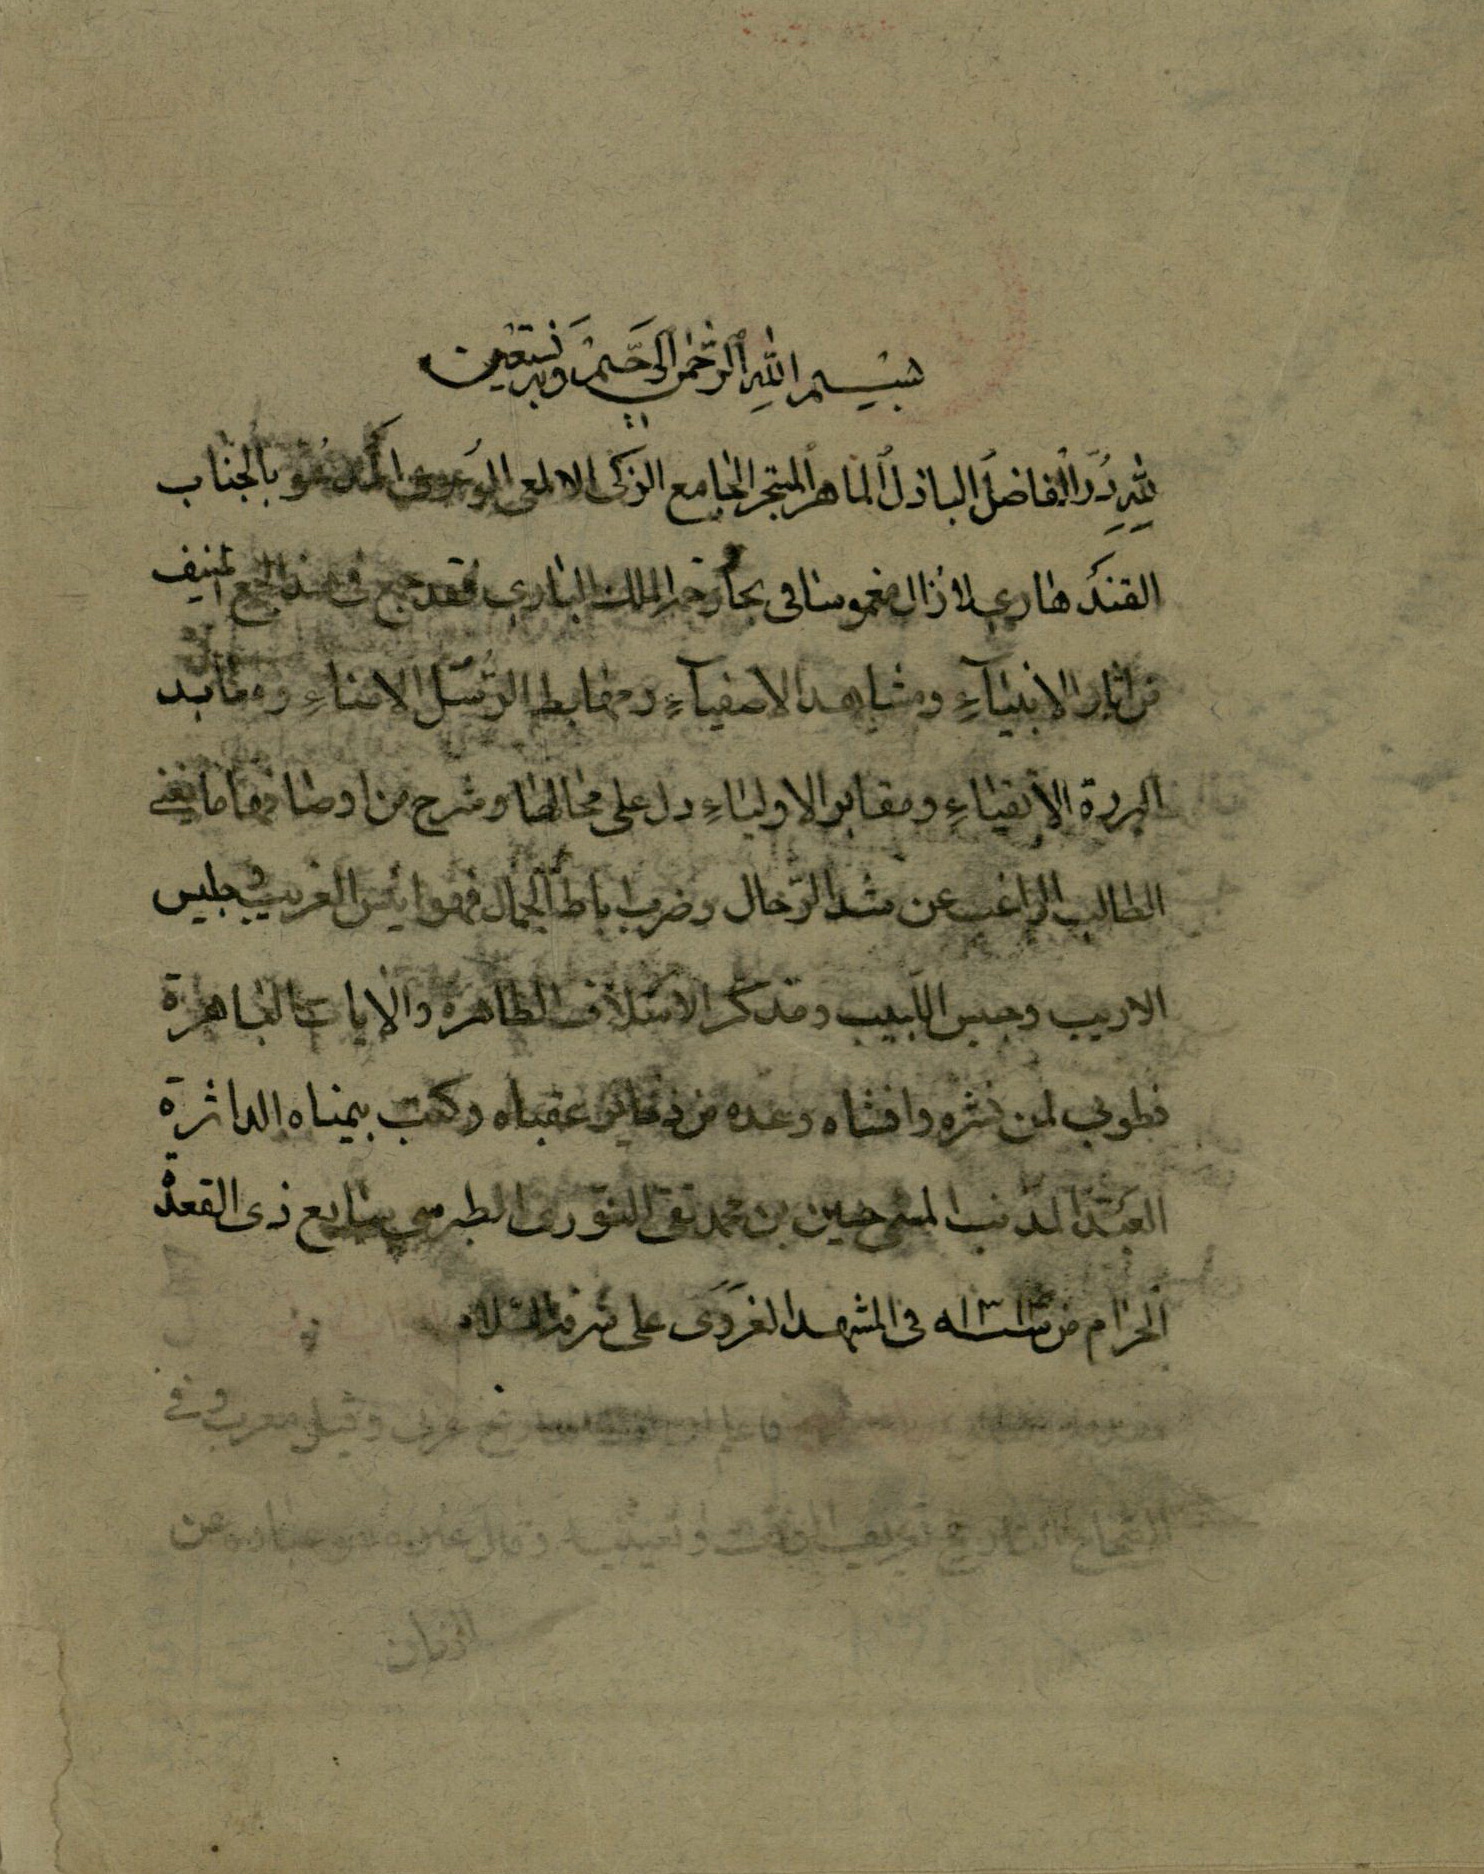 بِسْمِ اللّٰهِ الرَّحْمٰنِ الرَّحِيمِ وَبِهِ نَسْتَعِين
لِلّٰهِ دُرُّ الفاضل الباذل الماهر المتبحر الجامع الزكى الالمعى اللوذعى المدعو بالجناب
القندهارى لا زال مغموسا فى بحار رحمة الملك البارى فقد جمع فى هذا الجمع المنيف
من اثار الانبياء ومشاهد الاصفياء ومهابط الرسل الامناء ومعابد
البررة الاتقياء ومقابر الاولياء دل على محالها وشرح من اوصافها ما يغنى
الطالب الراغب عن شد الرحال وضرب اباط الجمال فهو انيس الغريب وجليس
الاريب وحبيس اللبيب ومذكر الاسلاف الطاهرة والايات الباهرة
فطوبى لمن نشره وافشاه وعده من ذخاير عقباه وكتب بيمناه الداثرة
العبد المذنب المسى حسين بن محمد تقى النورى الطبرسى سابع ذى القعدة
الحرام من سنة فى المشهد الغروى على مشرفه السلام
وقيل معرب وفى
التاريخ تعريف الوقت وقال عبارة عن
الزمان